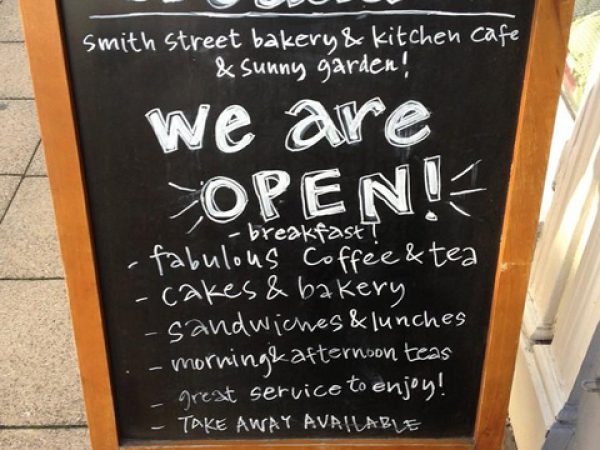 smith street bakery & kitchen cafe
& sunny garden!
we are
OPEN!
- breakfast!
- fabulous coffee & tea
- cakes & bakery
- sandwiches & lunches
- morning & afternoon teas
- great service to enjoy!
- TAKE AWAY AVAILABLE